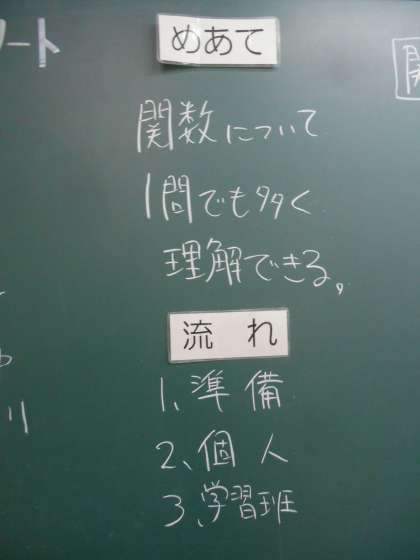 ート
めあて
関数について
1問でも多く
理解できる。
流れ
1、準備
2、個人
3、学習班
り